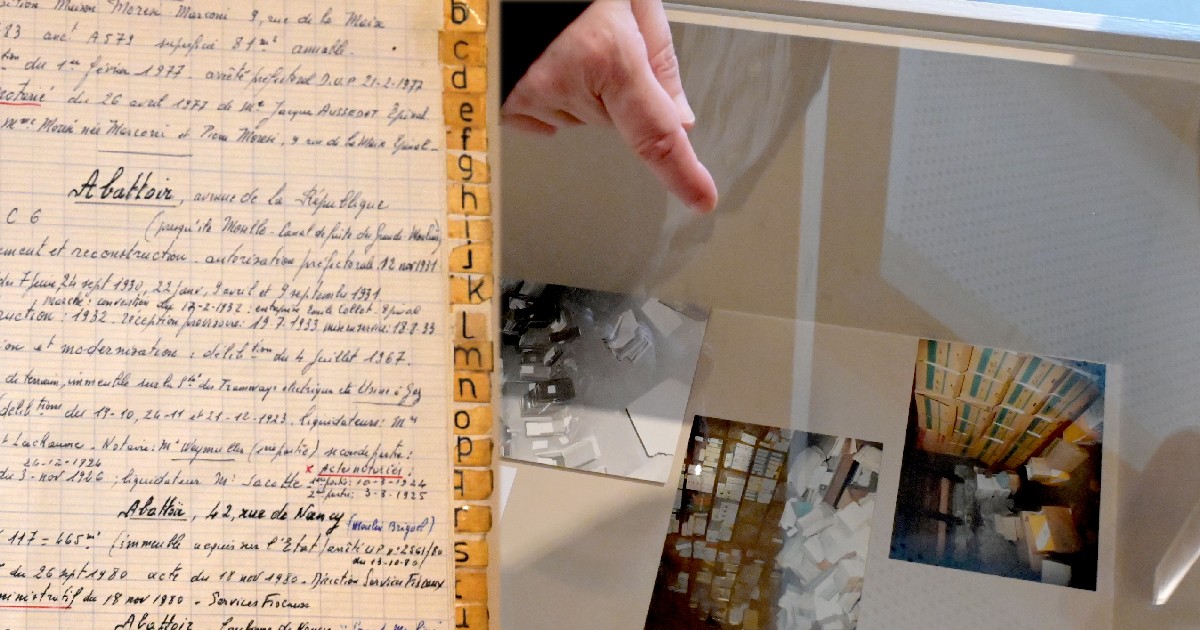 sition Maison Moresi Marconi 9, rue de la Maix
A 579 superficie 81 m² amiable.
du 1er février 1977. arrêté préfectoral D.U.P 21-2-1977
notarié du 26 avril 1977 de Me Jacques AUSSEDAT Epinal.
Mme Moresi née Marconi et Moresi, 9 rue de la Maix Epinal
Abattoir, avenue de la République
C 6 (presqu'île Moselle-Canal
ement et reconstruction. autorisation préfectorale 12 nov 1931
du 24 sept 1930, 22 janv, 9 avril et 9 septembre 1931
Marché: convention 12-2-1932: entreprise Collot. Epinal
uction: 1932. réception provisoire: 19.7.1933
ion et modernisation: délibtion du 4 Juillet 1967.
de terrain, immeuble sur la Sté des Tramways électriques et Usine à Gaz
délibtions du 19-10, 24-11 et 21-12-1923. liquidateurs:
Lachaume. Notaire: Me seconde partie:
26-12-1924 x acte notarié:
du 3 nov 1946; liquidateur Mr 1924
2e partie: 3-8-1925
Abattoir, 42, rue de Nancy (moulin Briguel)
117 = 465 m² (immeuble acquis sur l'Etat/arrêté
du 13-10-80)
du 26 sept 1980 acte du 18 nov 1980. Direction Services Fiscaux
ministratif du 18 nov 1980 - Services Fiscaux
Abattoir
b
c
d
e
f
g
h
i
j
k
l
m
n
o
p
q
r
s
t